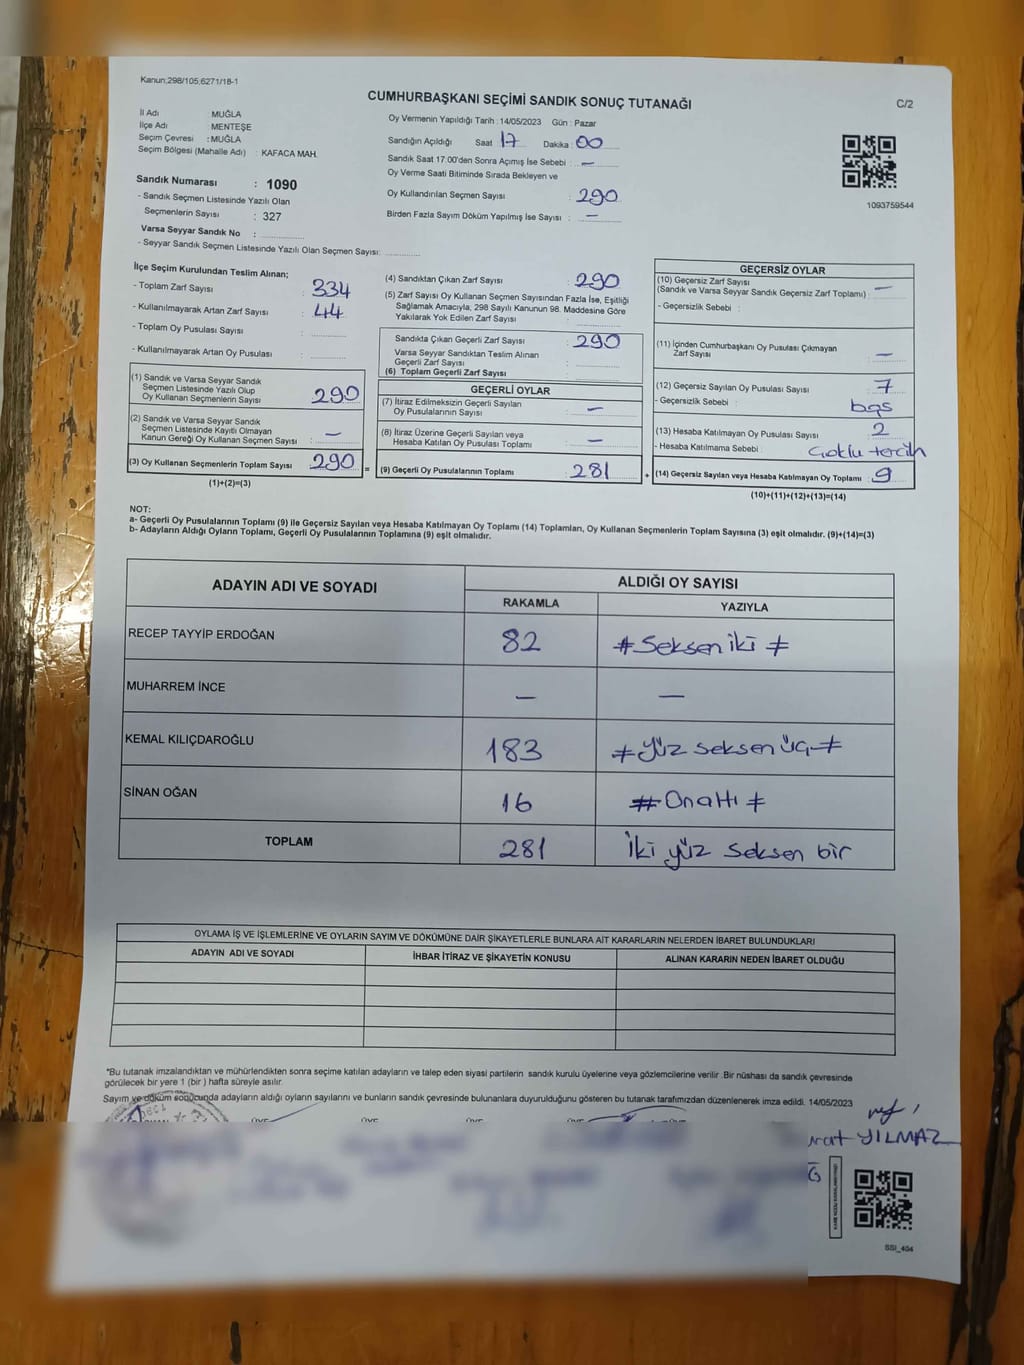 Kanun;298/105;6271/18-1
CUMHURBAŞKANI SEÇİMİ SANDIK SONUÇ TUTANAĞI
C/2
İl Adı : MUĞLA
İlçe Adı : MENTEŞE
Seçim Çevresi : MUĞLA
Seçim Bölgesi (Mahalle Adı) : KAFACA MAH.
Sandık Numarası : 1090
- Sandık Seçmen Listesinde Yazılı Olan
Seçmenlerin Sayısı : 327
Varsa Seyyar Sandık No :
- Seyyar Sandık Seçmen Listesinde Yazılı Olan Seçmen Sayısı:
Oy Vermenin Yapıldığı Tarih : 14/05/2023 Gün : Pazar
Sandığın Açıldığı Saat 17 Dakika : 00
Sandık Saat 17:00'den Sonra Açımış İse Sebebi : —
Oy Verme Saati Bitiminde Sırada Bekleyen ve
Oy Kullandırılan Seçmen Sayısı : 290
Birden Fazla Sayım Döküm Yapılmış İse Sayısı : —
1093759544
İlçe Seçim Kurulundan Teslim Alınan;
- Toplam Zarf Sayısı : 334
- Kullanılmayarak Artan Zarf Sayısı : 44
- Toplam Oy Pusulası Sayısı :
- Kullanılmayarak Artan Oy Pusulası :
(1) Sandık ve Varsa Seyyar Sandık
Seçmen Listesinde Yazılı Olup
Oy Kullanan Seçmenlerin Sayısı : 290
(2) Sandık ve Varsa Seyyar Sandık
Seçmen Listesinde Kayıtlı Olmayan
Kanun Gereği Oy Kullanan Seçmen Sayısı : —
(3) Oy Kullanan Seçmenlerin Toplam Sayısı 290 =
(1)+(2)=(3)
(4) Sandıktan Çıkan Zarf Sayısı : 290
(5) Zarf Sayısı Oy Kullanan Seçmen Sayısından Fazla İse, Eşitliği
Sağlamak Amacıyla, 298 Sayılı Kanunun 98. Maddesine Göre
Yakılarak Yok Edilen Zarf Sayısı :
Sandıkta Çıkan Geçerli Zarf Sayısı : 290
Varsa Seyyar Sandıktan Teslim Alınan
Geçerli Zarf Sayısı :
(6) Toplam Geçerli Zarf Sayısı :
GEÇERLİ OYLAR
(7) İtiraz Edilmeksizin Geçerli Sayılan
Oy Pusulalarının Sayısı : —
(8) İtiraz Üzerine Geçerli Sayılan veya
Hesaba Katılan Oy Pusulası Toplamı : —
(9) Geçerli Oy Pusulalarının Toplamı : 281 +
GEÇERSİZ OYLAR
(10) Geçersiz Zarf Sayısı
(Sandık ve Varsa Seyyar Sandık Geçersiz Zarf Toplamı) : —
- Geçersizlik Sebebi :
(11) İçinden Cumhurbaşkanı Oy Pusulası Çıkmayan
Zarf Sayısı : —
(12) Geçersiz Sayılan Oy Pusulası Sayısı : 7
- Geçersizlik Sebebi : boş
(13) Hesaba Katılmayan Oy Pusulası Sayısı : 2
- Hesaba Katılmama Sebebi : Çoklu tercih
(14) Geçersiz Sayılan veya Hesaba Katılmayan Oy Toplamı : 9
(10)+(11)+(12)+(13)=(14)
NOT:
a- Geçerli Oy Pusulalarının Toplamı (9) ile Geçersiz Sayılan veya Hesaba Katılmayan Oy Toplamı (14) Toplamları, Oy Kullanan Seçmenlerin Toplam Sayısına (3) eşit olmalıdır. (9)+(14)=(3)
b- Adayların Aldığı Oyların Toplamı, Geçerli Oy Pusulalarının Toplamına (9) eşit olmalıdır.
ADAYIN ADI VE SOYADI
ALDIĞI OY SAYISI
RAKAMLA YAZIYLA
RECEP TAYYİP ERDOĞAN 82 # Seksen iki #
MUHARREM İNCE — —
KEMAL KILIÇDAROĞLU 183 # yüz seksen üç #
SİNAN OĞAN 16 # Onaltı #
TOPLAM 281 İki yüz seksen bir
OYLAMA İŞ VE İŞLEMLERİNE VE OYLARIN SAYIM VE DÖKÜMÜNE DAİR ŞİKAYETLERLE BUNLARA AİT KARARLARIN NELERDEN İBARET BULUNDUKLARI
ADAYIN ADI VE SOYADI İHBAR İTİRAZ VE ŞİKAYETİN KONUSU ALINAN KARARIN NEDEN İBARET OLDUĞU
*Bu tutanak imzalandıktan ve mühürlendikten sonra seçime katılan adayların ve talep eden siyasi partilerin sandık kurulu üyelerine veya gözlemcilerine verilir .Bir nüshası da sandık çevresinde
görülecek bir yere 1 (bir ) hafta süreyle asılır.
Sayım ve döküm sonucunda adayların aldığı oyların sayılarını ve bunların sandık çevresinde bulunanlara duyurulduğunu gösteren bu tutanak tarafımızdan düzenlenerek imza edildi. 14/05/2023
YILMAZ
SSI_404